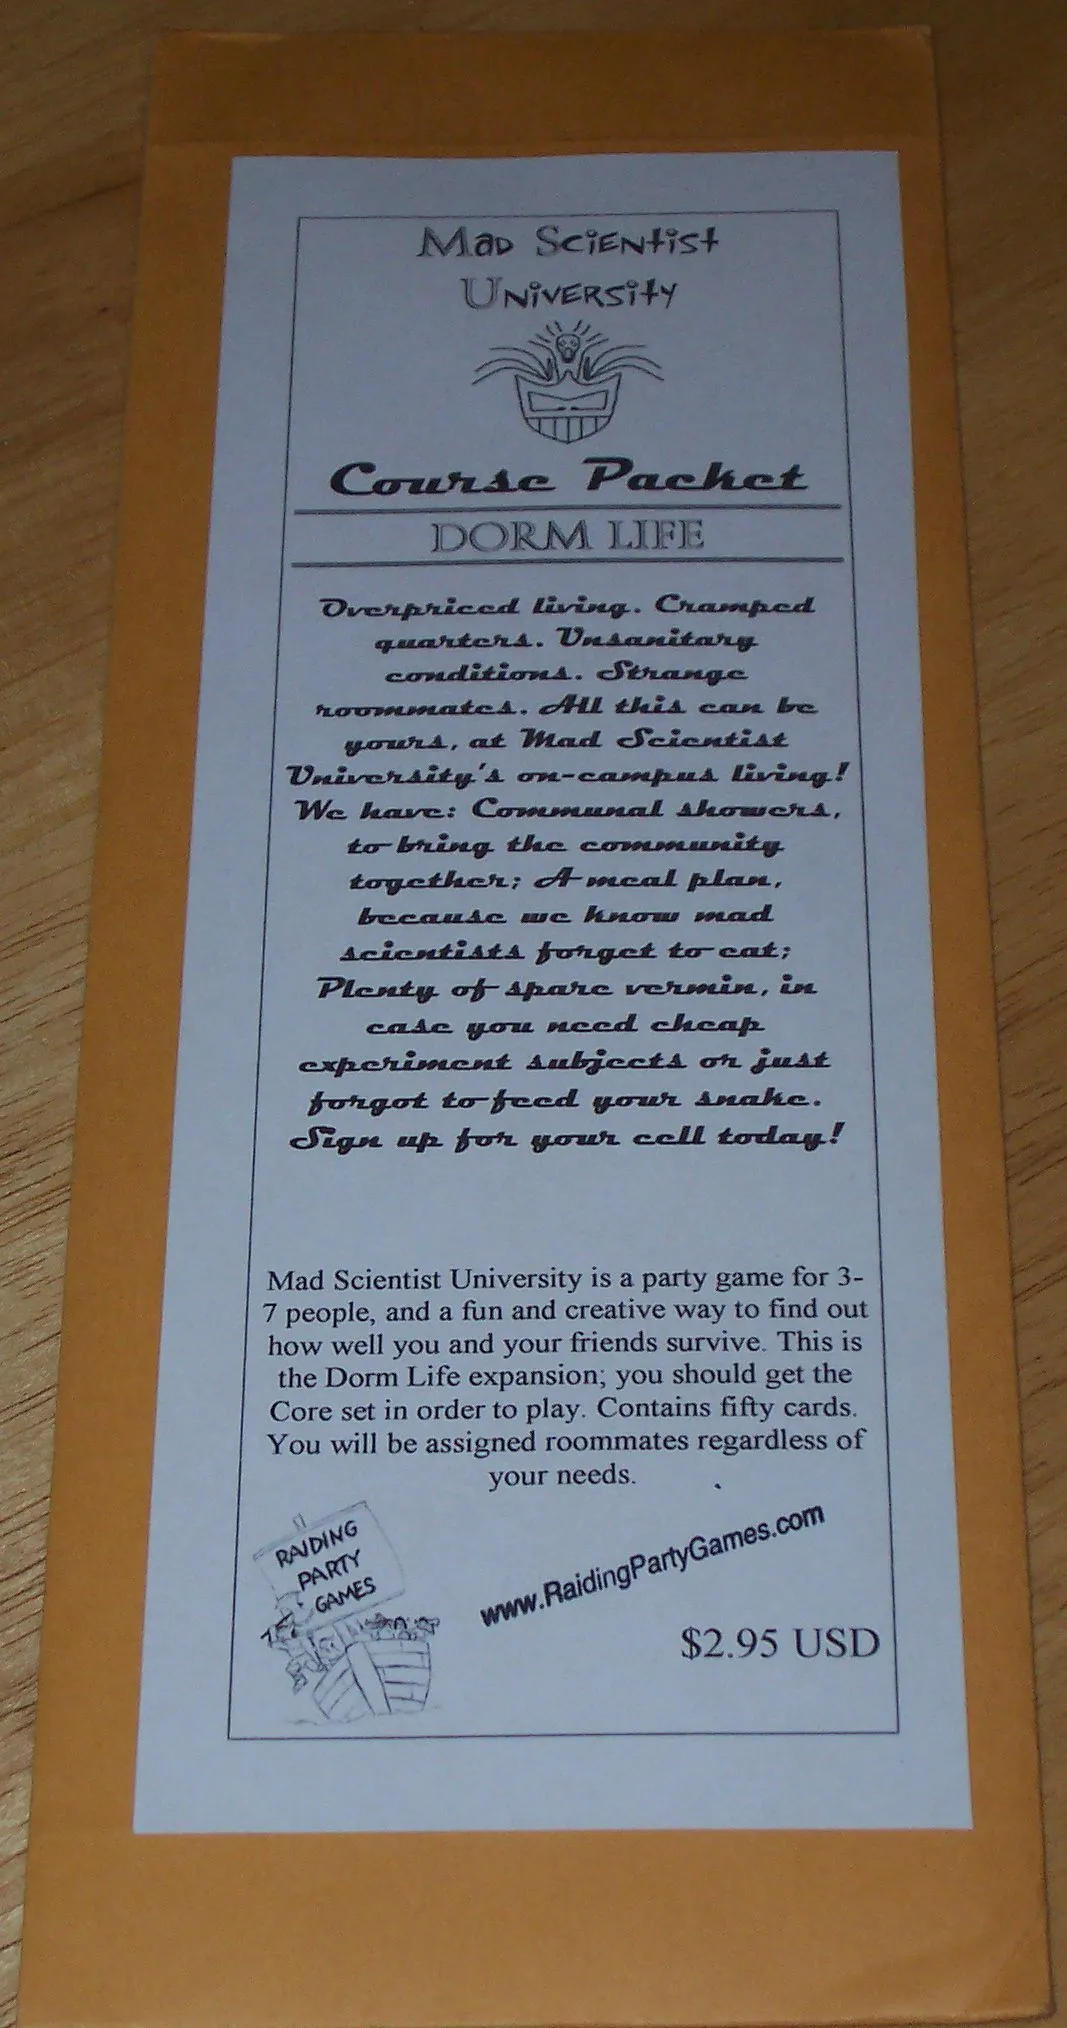 Mad Scientist
University
Course Packet
DORM LIFE
Overpriced living. Cramped
quarters. Unsanitary
conditions. Strange
roommates. All this can be
yours, at Mad Scientist
University's on-campus living!
We have: Communal showers,
to bring the community
together; A meal plan,
because we know mad
scientists forget to eat;
Plenty of spare vermin, in
case you need cheap
experiment subjects or just
forgot to feed your snake.
Sign up for your cell today!
Mad Scientist University is a party game for 3-
7 people, and a fun and creative way to find out
how well you and your friends survive. This is
the Dorm Life expansion; you should get the
Core set in order to play. Contains fifty cards.
You will be assigned roommates regardless of
your needs.
RAIDING
PARTY
GAMES
www.RaidingPartyGames.com
$2.95 USD